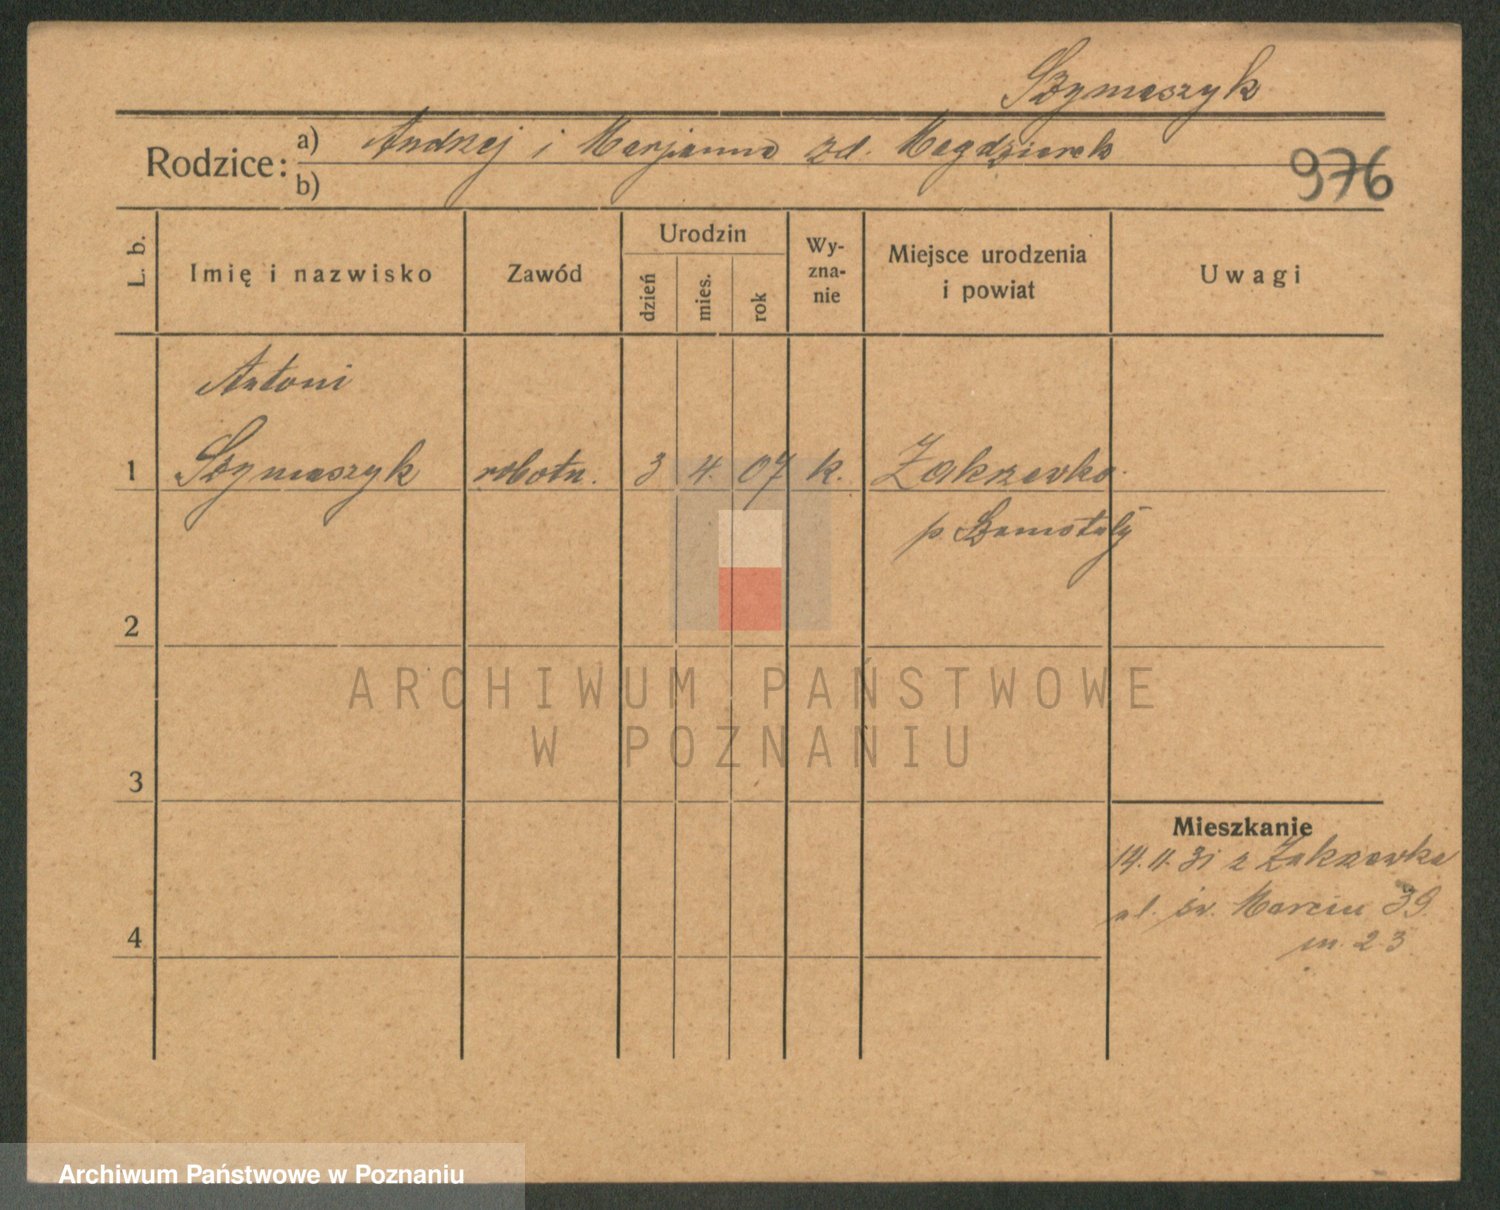 Szymaszyk
Rodzice: a) Andrzej i Marjanna zd. Magdziarek
b)
976
L. b.
Imię i nazwisko
Zawód
Urodzin
dzień
mies.
rok
Wy-
zna-
nie
Miejsce urodzenia
i powiat
Uwagi
Antoni
1 Szymaszyk robotn. 3 4. 07 k. Zakrzewko
p. Szamotuły
2
3
4
Mieszkanie
14.11.31 z Zakrzewka
ul. św. Marcin 39.
m. 23
ARCHIWUM PAŃSTWOWE
W POZNANIU
Archiwum Państwowe w Poznaniu